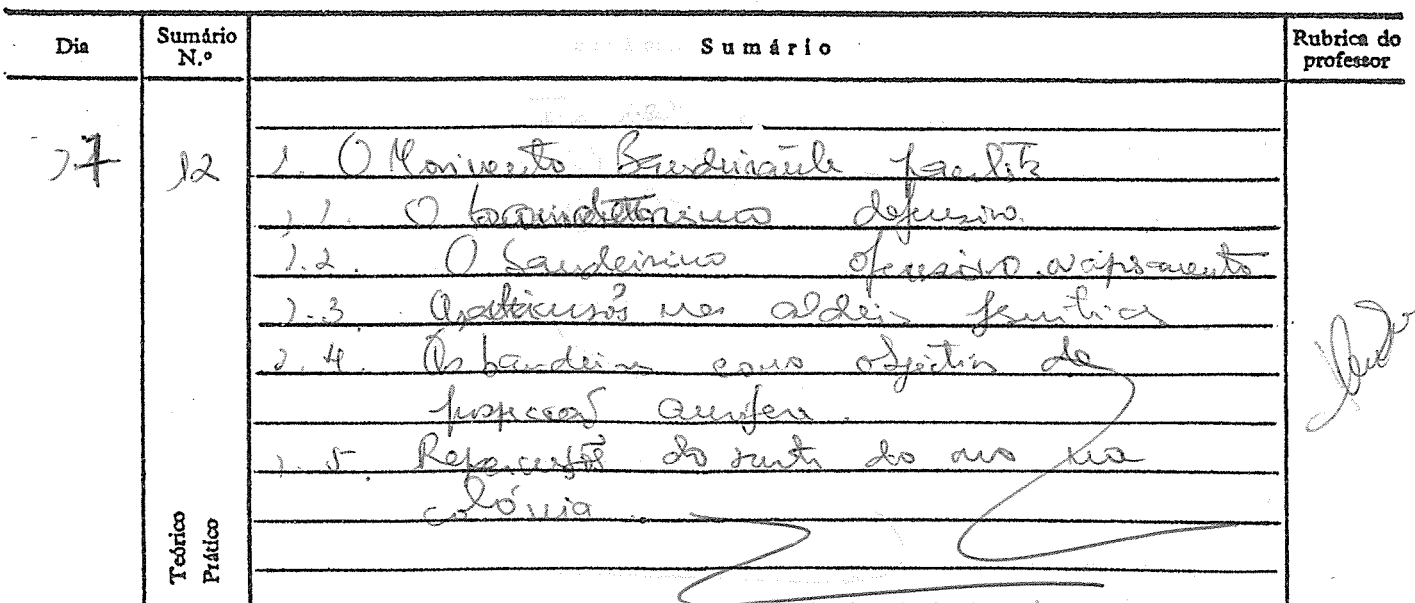 Dia Sumário N.º Sumário Rubrica do professor
12 1. O Movimento Bandeirante paulista
1.1. O defensivo
1.2. O bandeirismo ofensivo
1.3 nas aldeias jesuíticas
1.4. As bandeiras como objectivo de
prospecção aurífera.
1.5. Repercussões do surto do ouro na
colónia.
Teórico
Prático